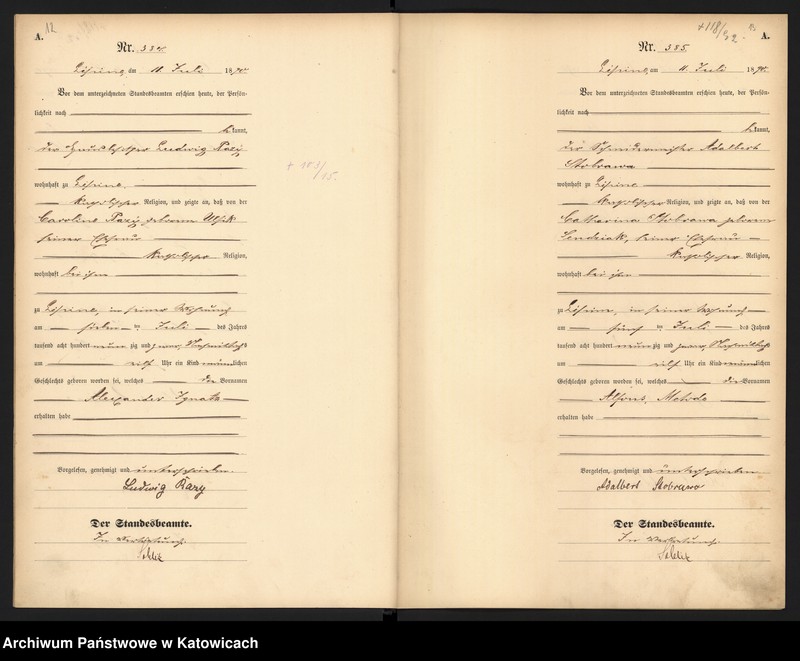 12
A.
Nr. 384.
am 11. Juli 1890.
Vor dem unterzeichneten Standesbeamten erschien heute, der Persön-
lichkeit nach
bekannt,
der Ludwig Razy
wohnhaft zu
katholischer Religion, und zeigte an, daß von der
Caroline Razy geborenen
seiner Ehefrau
katholischer Religion,
wohnhaft bei ihm
zu in seiner Wohnung
am sieben ten Juli des Jahres
tausend acht hundert neunzig und zwar Nachmittags
um Uhr ein Kind männlichen
Geschlechts geboren worden sei, welches die Vornamen
Alexander Ignatz
erhalten habe
Vorgelesen, genehmigt und unterschrieben
Ludwig Razy
Der Standesbeamte.
In Vertretung.
+ 103/15.
+118/92
A.
Nr. 385.
am 11. Juli 1890.
Vor dem unterzeichneten Standesbeamten erschien heute, der Persön-
lichkeit nach
bekannt,
der Schneidermeister Adalbert
Stobrawa
wohnhaft zu
katholischer Religion, und zeigte an, daß von der
Catharina Stobrawa geborenen
seiner Ehefrau
katholischer Religion,
wohnhaft bei ihm
zu in seiner Wohnung
am fünf ten Juli des Jahres
tausend acht hundert neunzig und zwar Nachmittags
um Uhr ein Kind männlichen
Geschlechts geboren worden sei, welches die Vornamen
Alfons
erhalten habe
Vorgelesen, genehmigt und unterschrieben
Adalbert Stobrawa
Der Standesbeamte.
In Vertretung.
Archiwum Państwowe w Katowicach